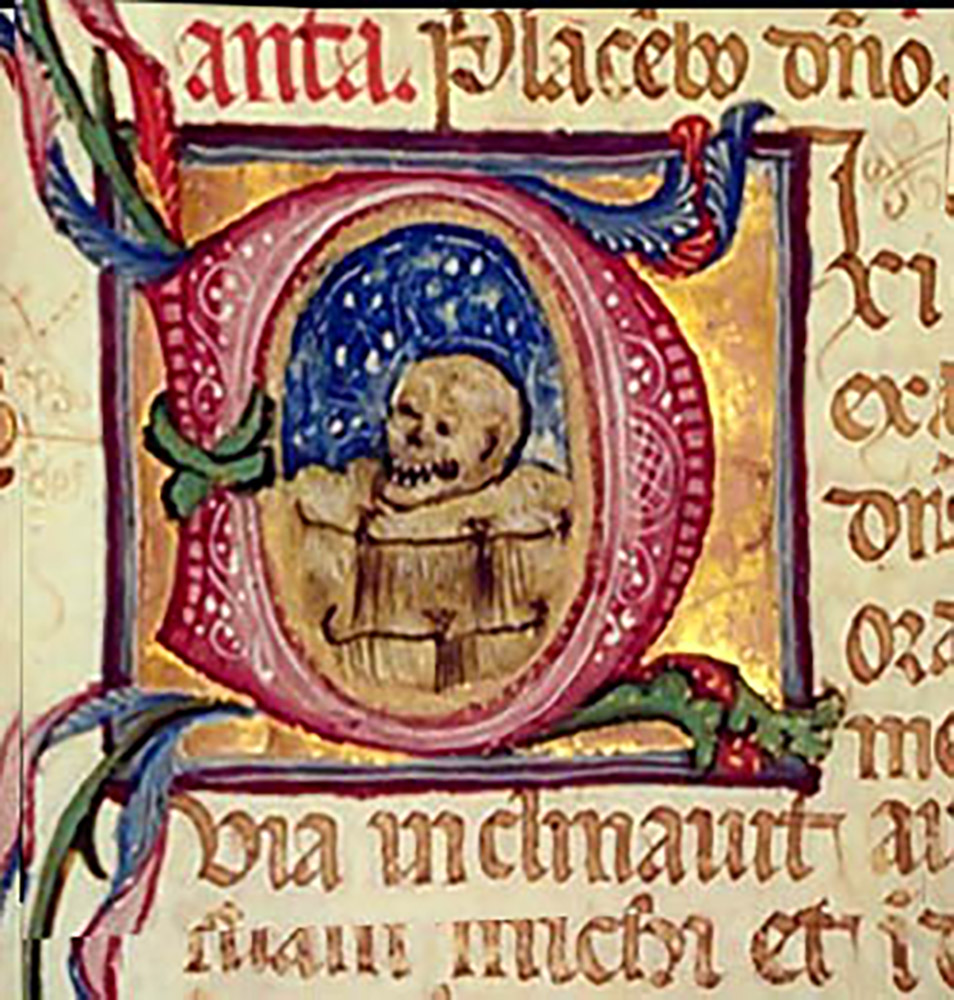 anta. Placebo dño.
I
xi
exa
dn̄s
ora
me
via inclinauit au
suam michi et i